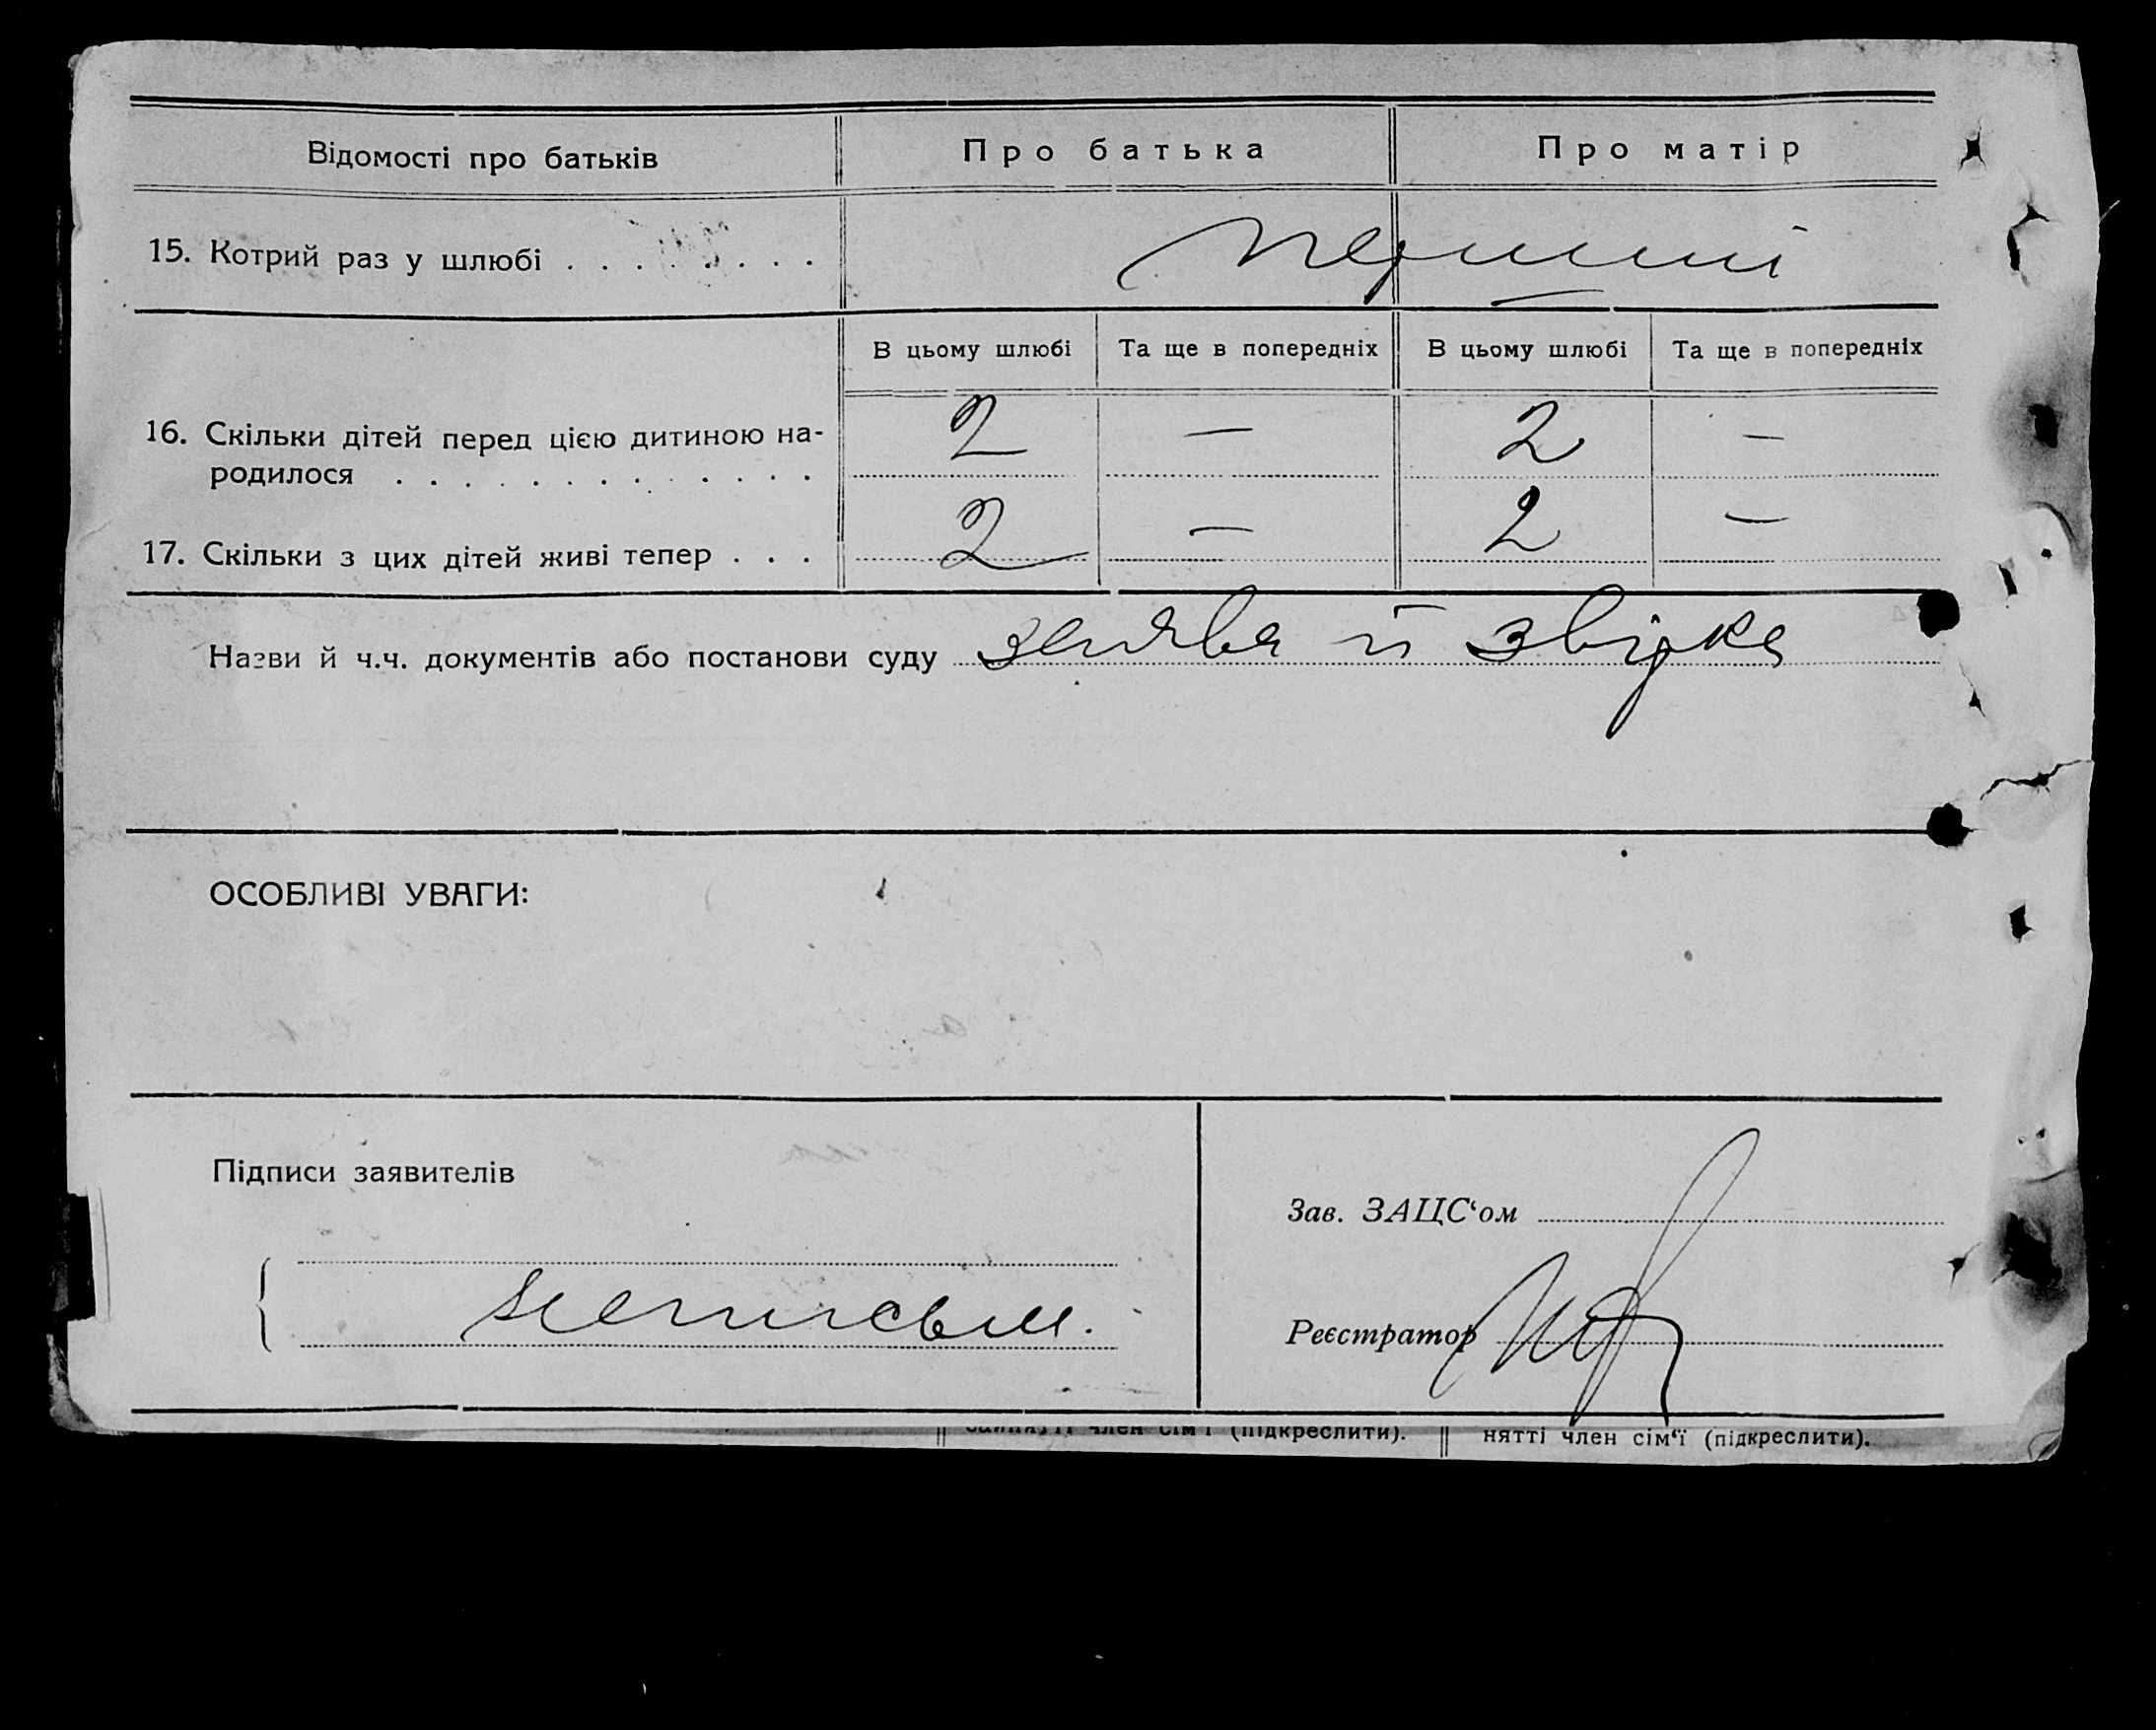 Відомості про батьків
Про батька
Про матір
15. Котрий раз у шлюбі . . . . . . . .
перший
В цьому шлюбі
Та ще в попередніх
В цьому шлюбі
Та ще в попередніх
16. Скільки дітей перед цією дитиною на-
родилося . . . . . . . . . . . . .
2 — 2 —
17. Скільки з цих дітей живі тепер . . .
2 — 2 —
Назви й ч.ч. документів або постанови суду заява й звірка
ОСОБЛИВІ УВАГИ:
Підписи заявителів
Зав. ЗАЦС‘ом
неписьм.
Реєстратор
член сім‘ї (підкреслити).
нятті член сім‘ї (підкреслити).